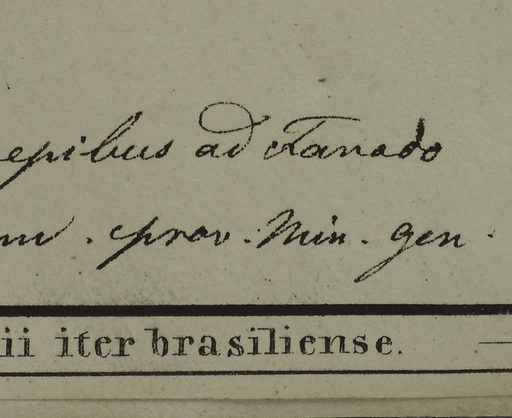 epibus ad Tanado
prov. Min. gen.
ii iter brasiliense.